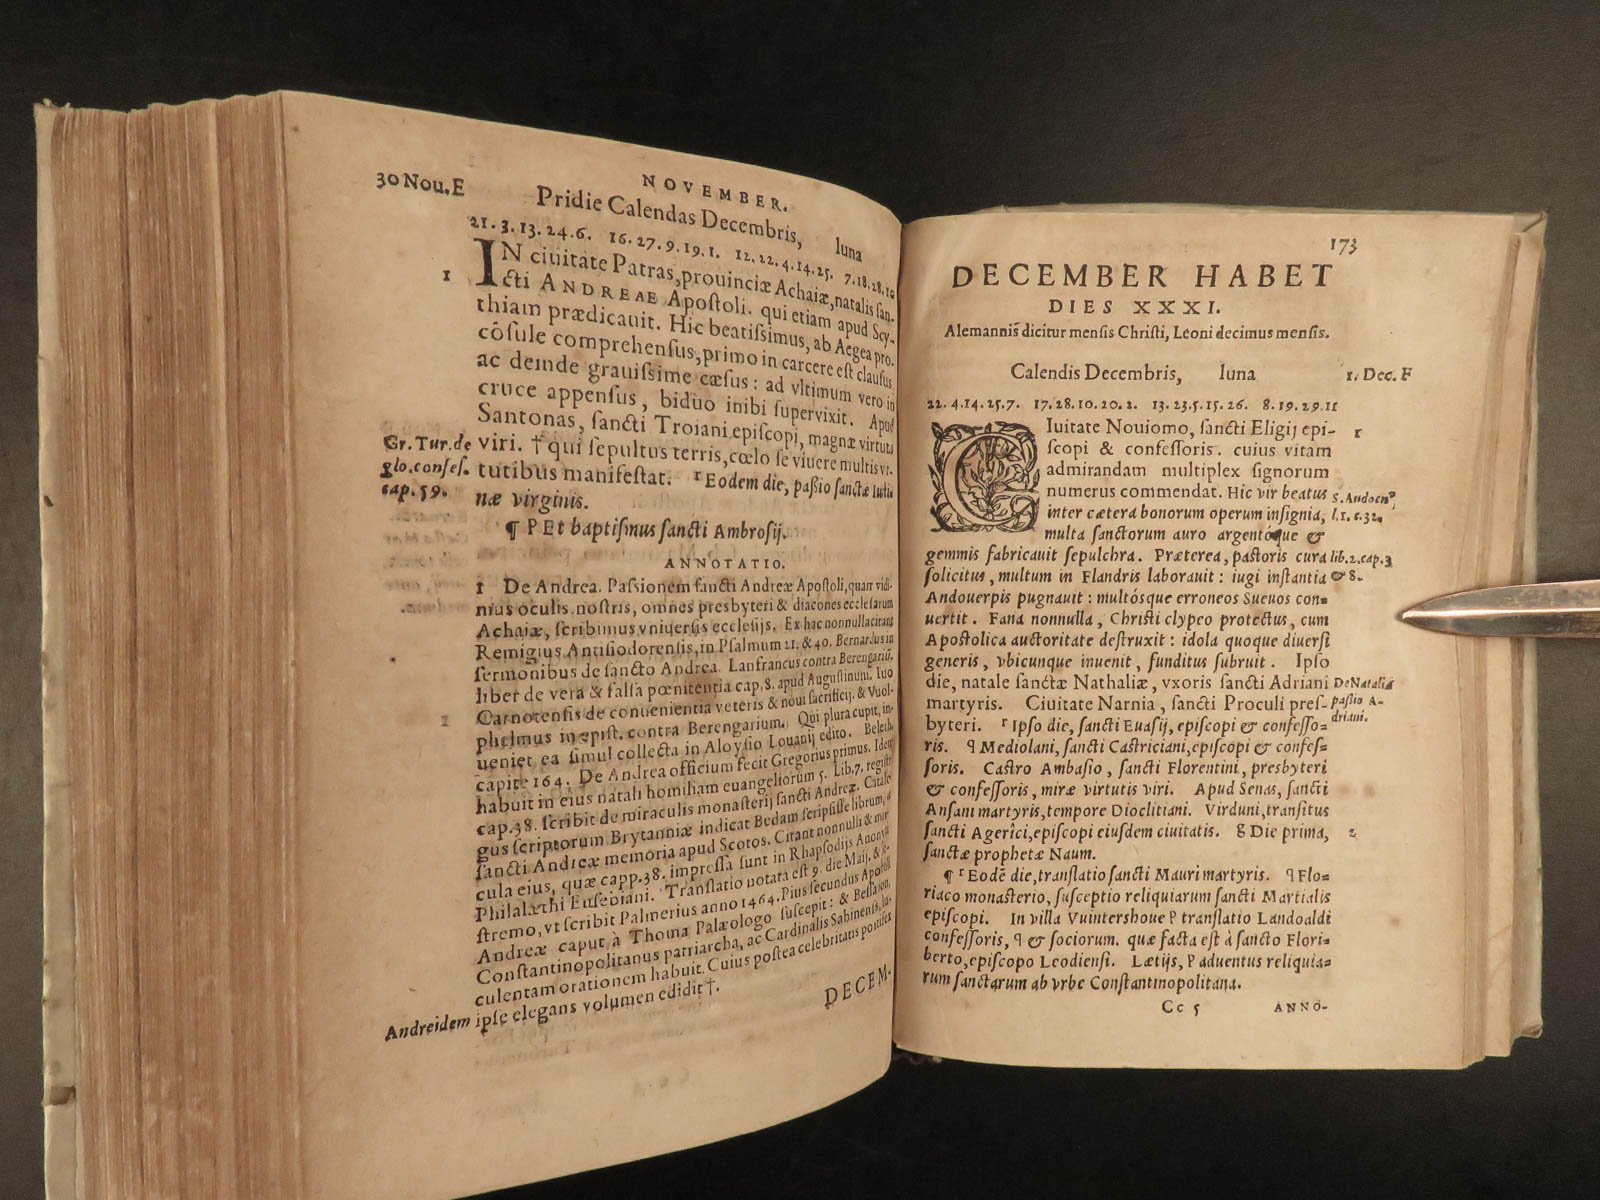 NOVEMBER.
30 Nou. E
Pridie Calendas Decembris, luna
21. 3. 13. 24. 6. 16. 27. 9. 19. 1. 12. 22. 4. 14. 25. 7. 18. 28. 10
1
IN ciuitate Patras, prouinciæ Achaiæ, natalis san-
cti ANDREAE Apostoli. qui etiam apud Scy-
thiam prædicauit. Hic beatissimus, ab Aegea pro-
cõsule comprehensus, primo in carcere est clausus,
ac deinde grauissime cæsus: ad vltimum vero in
cruce appensus, biduo inibi supervixit. Apud
Santonas, sancti Troiani episcopi, magnæ virtutis
Gr. Tur. de
glo. confes.
cap. 59.
viri. † qui sepultus terris, cœlo se viuere multis vir-
tutibus manifestat. ⸢Eodem die, passio sanctæ Iusti-
næ virginis.
¶ P Et baptismus sancti Ambrosij.
ANNOTATIO.
1 De Andrea. Passionem sancti Andreæ Apostoli, quam vidi-
mus oculis nostris, omnes presbyteri & diacones ecclesiarum
Achaiæ, scribimus vniuersis ecclesijs. Ex hac nonnulla citant
Remigius Antisiodorensis, in Psalmum 21. & 40. Bernardus in
sermonibus de sancto Andrea. Lanfrancus contra Berengariũ.
liber de vera & falsa pœnitentia cap. 8. apud Augustinum. Iuo
Carnotensis de conuenientia veteris & noui sacrificij. & Vuol-
phelmus in epist. contra Berengarium. Qui plura cupit, in-
ueniet ea simul collecta in Aloysio Louanij edito. Beleth.
capite 164. De Andrea officium fecit Gregorius primus. Idem
habuit in eius natali homiliam euangeliorum 5. Lib. 7. registri
cap. 38. scribit de miraculis monasterij sancti Andreæ. Catalo-
gus scriptorum Brytanniæ indicat Bedam scripsisse librum, de
sancti Andreæ memoria apud Scotos. Citant nonnulli & mira-
cula eius, quæ capp. 38. impressa sunt in Rhapsodijs Anonymi
Philalæthi Eusebiani. Translatio notata est 9. die Maij. & po-
stremo, vt scribit Palmerius anno 1464. Pius secundus Apostoli
Andreæ caput à Thoma Palæologo suscepit: & Bessarion,
Constantinopolitanus patriarcha, ac Cardinalis Sabinensis, lu-
culentam orationem habuit. Cuius postea celebritatis pontifex
Andreidem
ipse elegans volumen edidit †.
DECEM-
173
DECEMBER HABET
DIES XXXI.
Alemannis dicitur mensis Christi, Leoni decimus mensis.
Calendis Decembris, luna
1. Dec. F
22. 4. 14. 25. 7. 17. 28. 10. 20. 2. 13. 23. 5. 15. 26. 8. 19. 29. 11
CIuitate Nouiomo, sancti Eligij epi-
1
scopi & confessoris. cuius vitam
admirandam multiplex signorum
numerus commendat. Hic vir beatus
inter cætera bonorum operum insignia,
S. Audoenꝰ
l. 1. c. 32.
multa sanctorum auro argentóque &
gemmis fabricauit sepulchra. Præterea, pastoris cura
solicitus, multum in Flandris laborauit: iugi instantia
lib. 2. cap. 3
& 8.
Andouerpis pugnauit: multósque erroneos Sueuos con-
uertit. Fana nonnulla, Christi clypeo protectus, cum
Apostolica auctoritate destruxit: idola quoque diuersi
generis, vbicunque inuenit, funditus subruit. Ipso
die, natale sanctæ Nathaliæ, vxoris sancti Adriani
De Natalia
passio A-
driani.
martyris. Ciuitate Narnia, sancti Proculi pres-
byteri. ⸢Ipso die, sancti Euasij, episcopi & confesso-
ris. ꟼ Mediolani, sancti Castriciani, episcopi & confes-
soris. Castro Ambasio, sancti Florentini, presbyteri
& confessoris, miræ virtutis viri. Apud Senas, sancti
Ansani martyris, tempore Diocliciani. Virduni, transitus
sancti Agerici, episcopi eiusdem ciuitatis. 8 Die prima,
2
sanctæ prophetæ Naum.
¶ ⸢Eodẽ die, translatio sancti Mauri martyris. ꟼ Flo-
riaco monasterio, susceptio reliquiarum sancti Martialis
episcopi. In villa Vuintershoue P translatio Landoaldi
confessoris, ꟼ & sociorum. quæ facta est à sancto Flori-
berto, episcopo Leodiensi. Lætijs, P aduentus reliquia-
rum sanctarum ab vrbe Constantinopolitana.
Cc 5
ANNO-